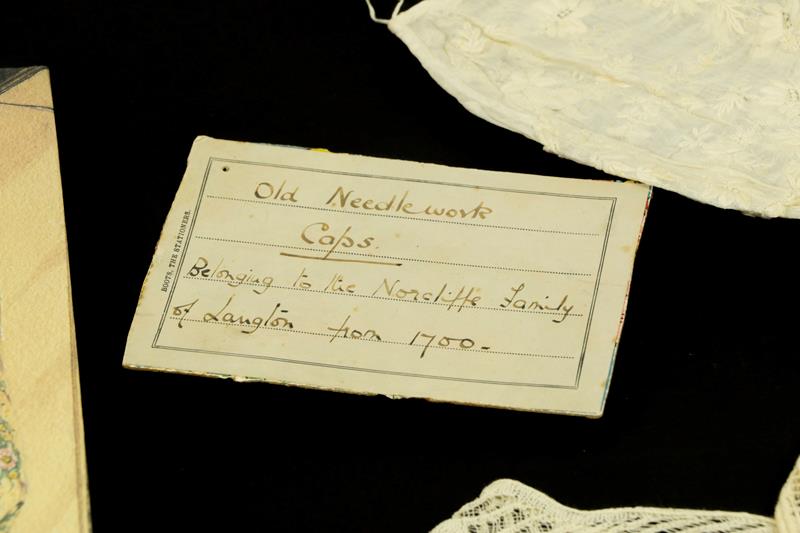 Old Needlework
Caps.
Belonging to the Norcliffe Family
of Langton from 1700-
BOOTS, THE STATIONERS.